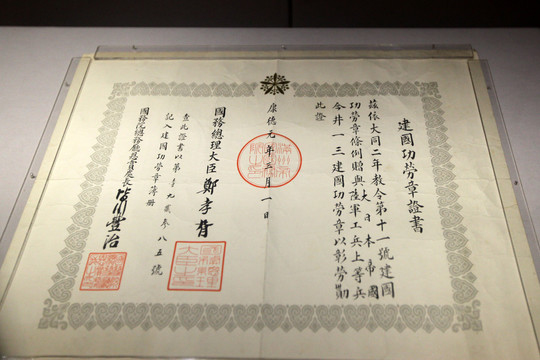 建國功勞章證書
茲依大同二年教令第十一號建國
功勞章條例贈與大日本帝國
陸軍工兵上等兵
今井一三建國功勞章以彰勞勛
此證
康德元年三月一日
國務總理大臣鄭孝胥
查此證書以第壹九貳參八五號
記入建國功勞章簿冊
國務院總務廳恩賞處長
豐治